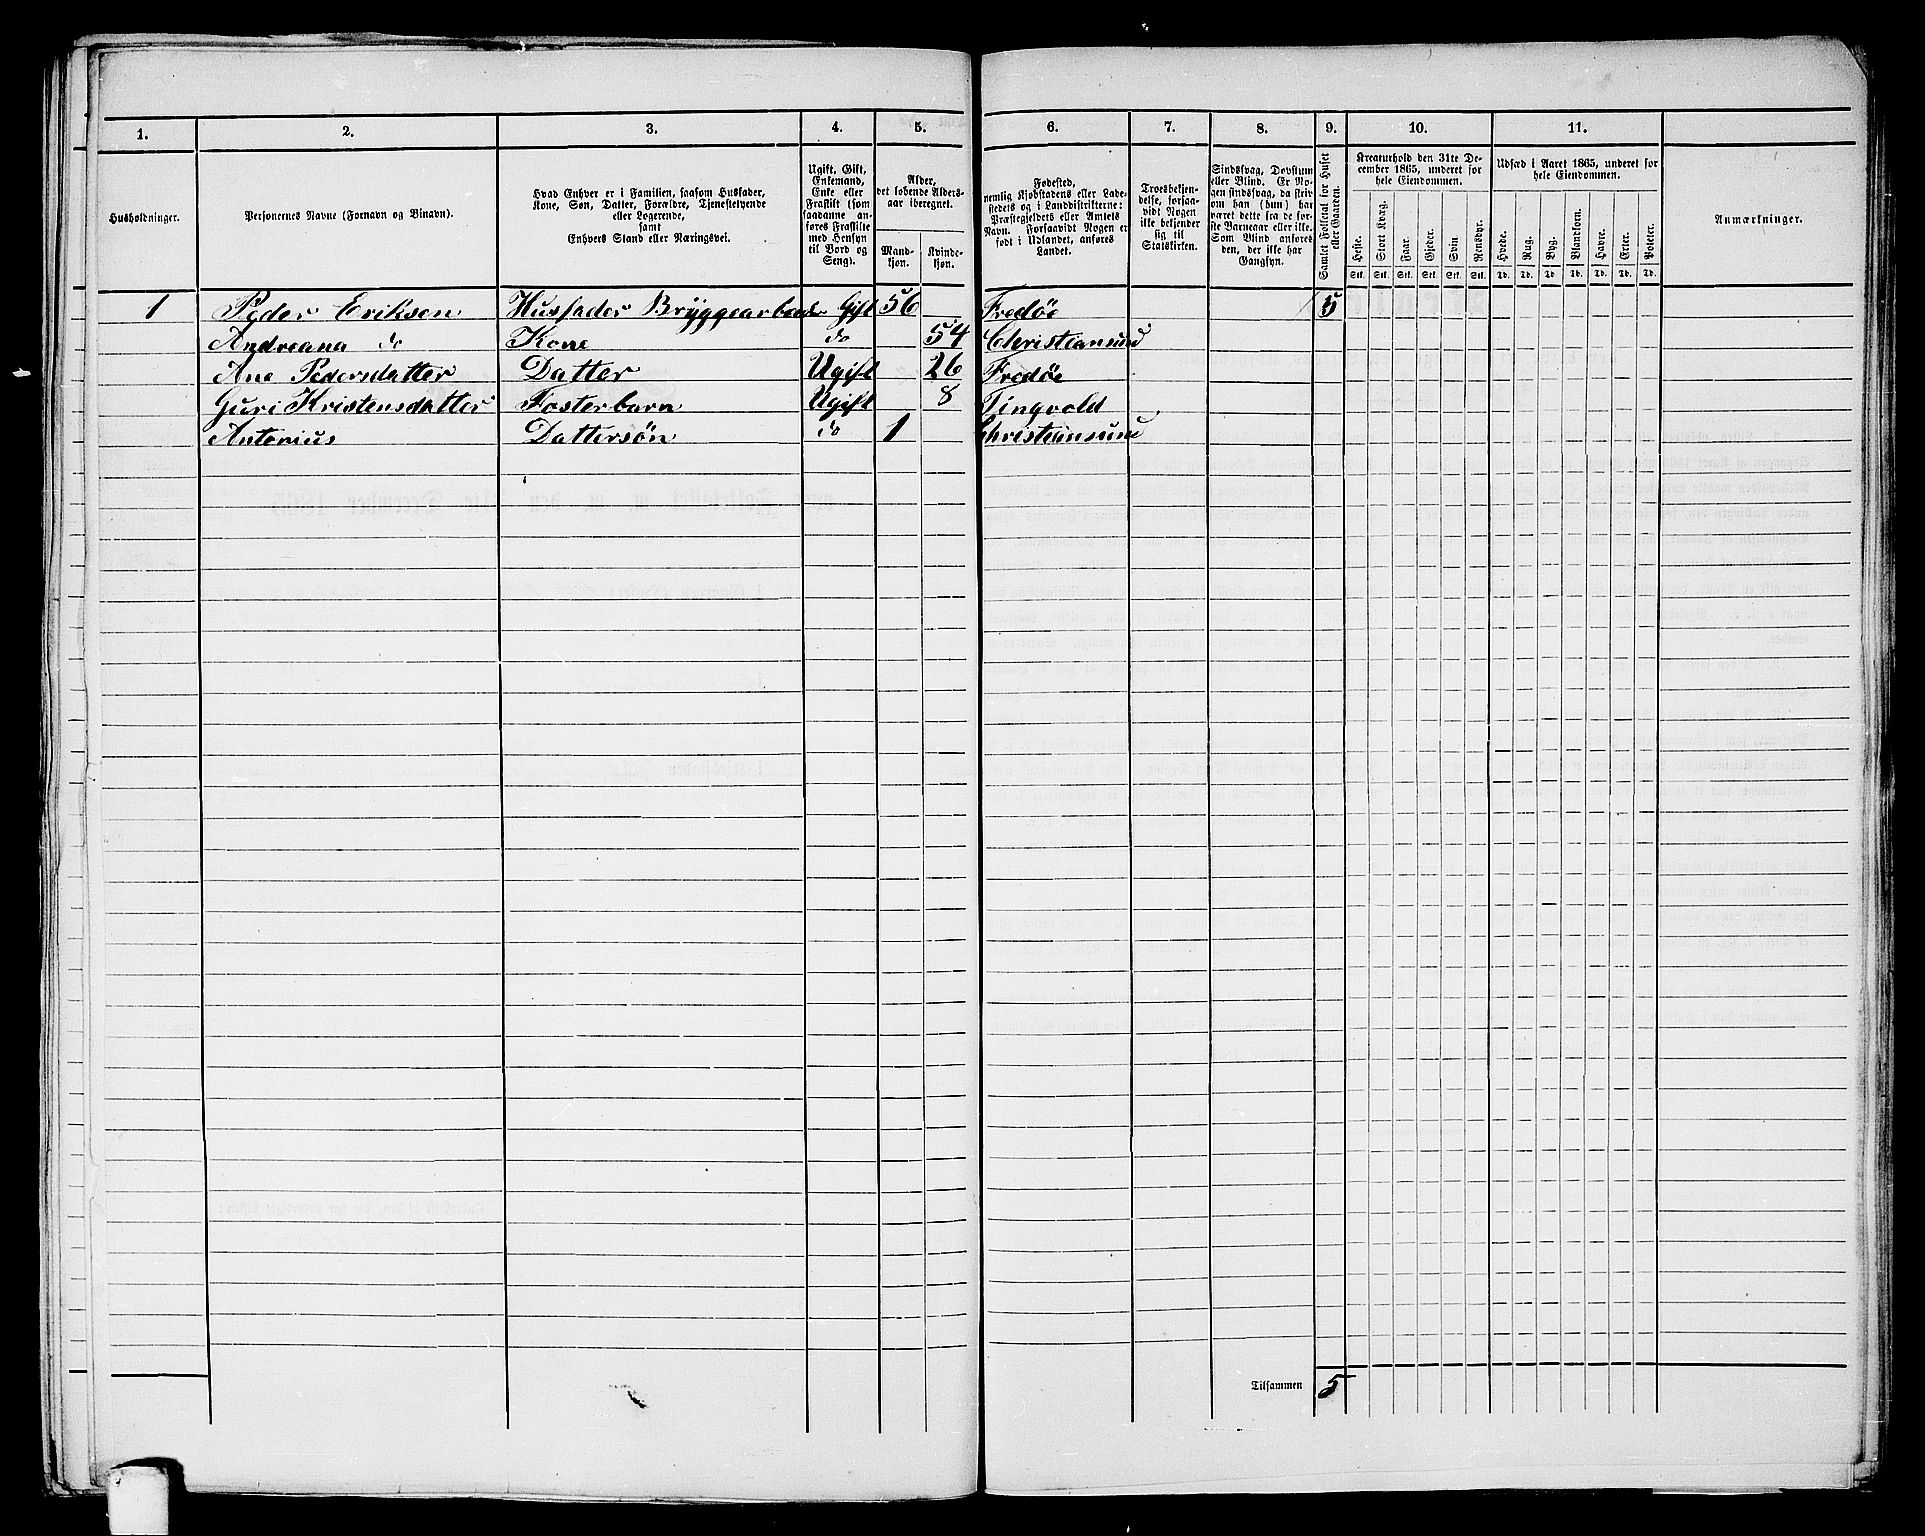 1. 2. 3. 4. 5. 6. 7. 8. 9. 10. 11.
Husholdninger.
Personernes Navne (Fornavn og Binavn).
Hvad Enhver er i Familien, saasom Husfader,
Kone, Søn, Datter, Forældre, Tjenestetyende
eller Logerende,
samt
Enhvers Stand eller Næringsvei.
Ugift, Gift,
Enkemand,
Enke eller
Fraskilt (som
saadanne an-
føres Fraskilte
med Hensyn
til Bord og
Seng).
Alder,
det løbende Alders-
aar iberegnet.
Mand-
kjøn.
Kvinde-
kjøn.
Fødested,
nemlig Kjøbstadens eller Lade-
stedets og i Landdistrikterne:
Præstegjeldets eller Amtets
Navn. Forsaavidt Nogen er
født i Udlandet, anføres
Landet.
Troesbekjen-
delse, forsaa-
vidt Nogen
ikke bekjender
sig til
Statskirken.
Sindssvag, Døvstum
eller Blind. Er No-
gen sindssvag, da skriv
om han (hun) har
været dette fra de før-
ste Barneaar eller ikke.
Som Blind anføres
den, der ikke har
Gangsyn.
Samlet Folketal for Huset
eller Gaarden.
Kreaturhold den 31te De-
cember 1865, underet for
hele Eiendommen.
Heste. Stort Kvæg. Faar. Gjeder. Svin Rensdyr.
Stk. Stk. Stk. Stk. Stk. Stk.
Udsæd i Aaret 1865, underet for
hele Eiendommen.
Hvede. Rug. Byg. Blandkorn. Havre. Erter. Poteter.
Td. Td. Td. Td. Td. Td. Td.
Anmærkninger.
1 Peder Eriksen Husfader Bryggearbeider Gift 56 Fredøe 5
Andreana do Kone do 54 Christiansund
Ane Pedersdatter Datter Ugift 26 Fredøe
Guri Kristensdatter Fosterbarn Ugift 8 Tingvold
Antonius Dattersøn do 1 Christiansund
Tilsammen 5